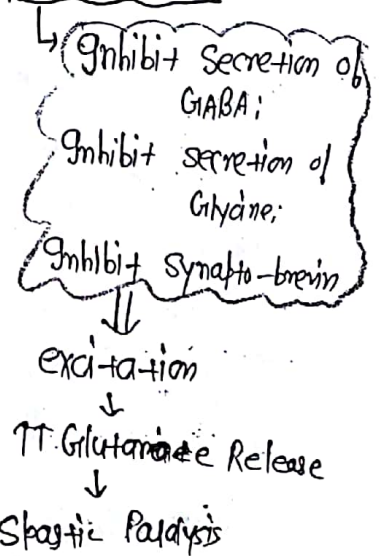 ↳ Inhibit Secretion of
GABA;
Inhibit secretion of
Glycine;
Inhibit synapto-brevin
⇓
excitation
↓
↑↑ Glutamate Release
↓
Spastic Paralysis